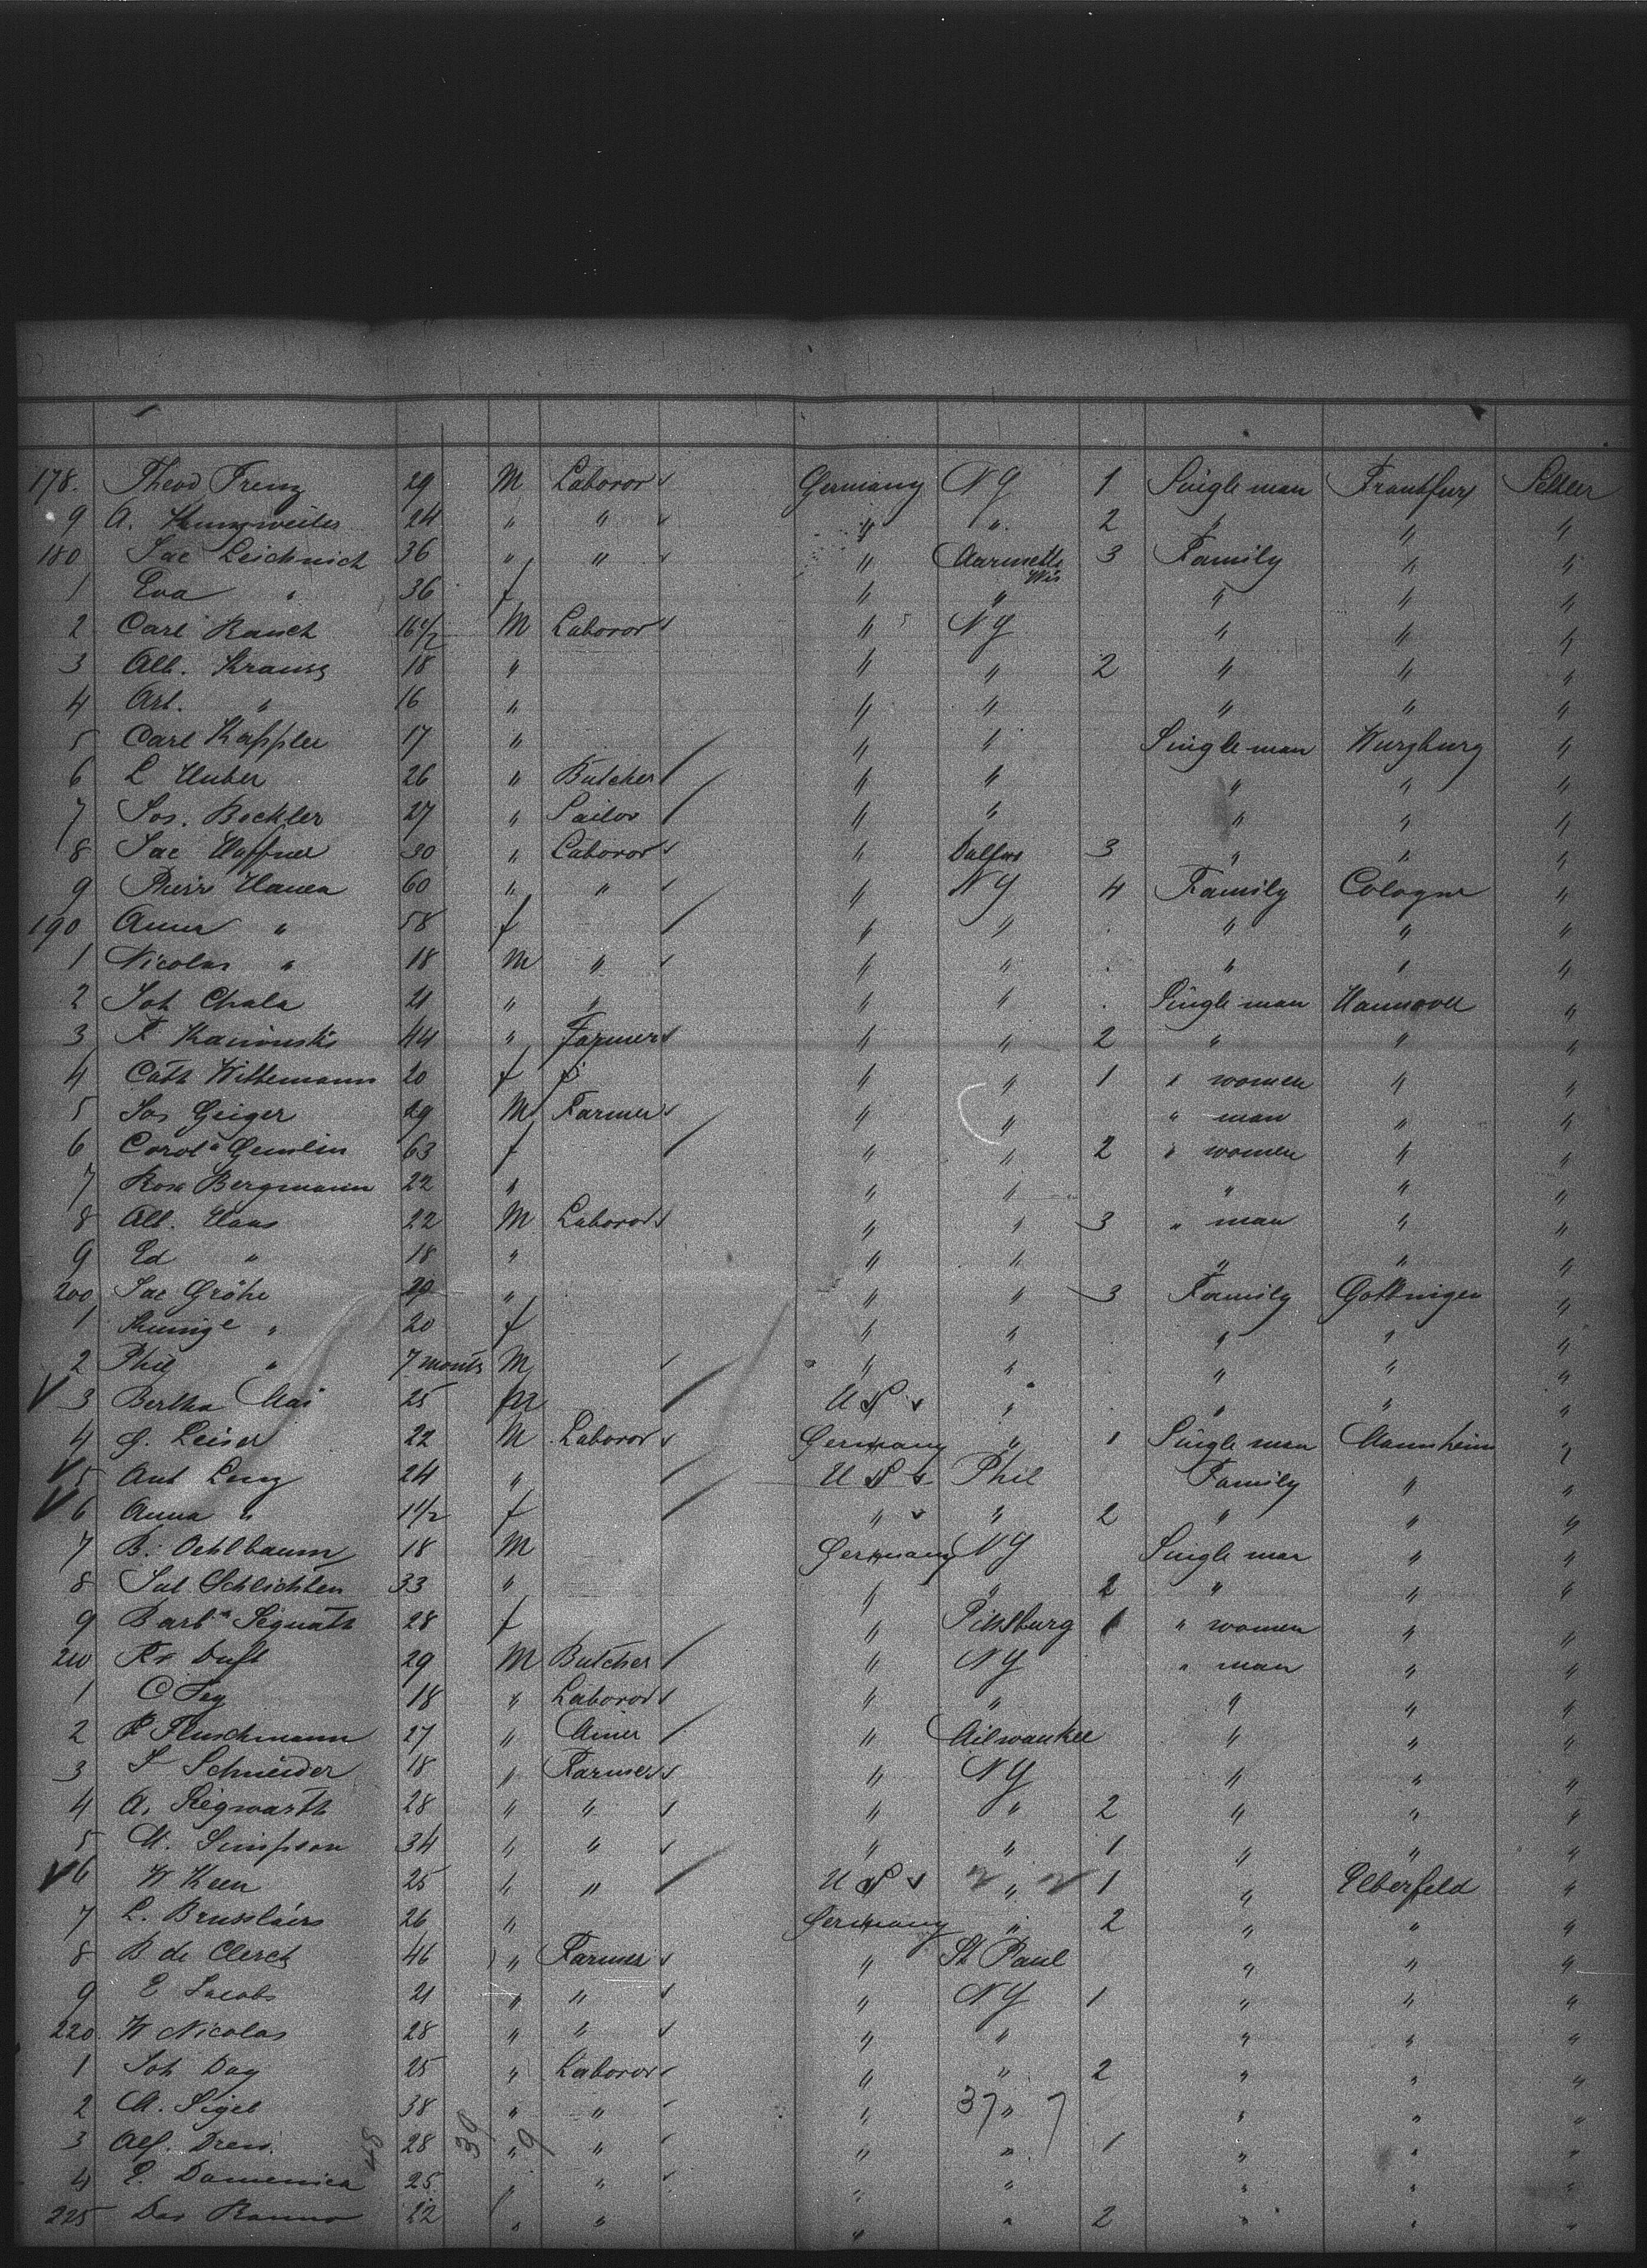 178. Theod Frenz 29 M Laboror Germany NY 1 Single man Frankfurt Settler
9 A. Kunzweiler 24 " " " " 2 " " "
180 Jac Leichnich 36 " " " Marinette Wis 3 Family " "
1 Eva " 36 f " " " " "
2 Carl Rauch 16 1/2 M Laboror " NY " " "
3 Alb. Krauss 18 " " " 2 " " "
4 Art. " 16 " " " " " "
5 Carl Kappler 17 " " " Single man Wurzburg "
6 L Huber 26 " Butcher " " " " "
7 Jos. Bockler 27 " Sailor " " " " "
8 Jac Haffner 30 " Laboror " Dallas 3 " " "
9 Pierr Hauen 60 " " " NY 4 Family Cologne "
190 Anna " 58 f " " " " "
1 Nicolas " 18 M " " " " " "
2 Joh Chala 21 " " " " Single man Hannover "
3 F Kaminski 44 " Farmer " " 2 " " "
4 Cath Wittemann 20 f " " 1 " women " "
5 Jos Geiger 29 M Farmer " " " man " "
6 Carola Gemlin 63 f " " 2 " women " "
7 Rosa Bergmann 22 " " " " " "
8 Alb. Haas 22 M Laboror " " 3 " man " "
9 Ed " 18 " " " " " "
200 Jac Gröhe 29 " " " 3 Family Gottingen "
1 Kunige " 20 f " " " " "
2 Phil " 7 months M " " " " "
3 Bertha Mai 25 U S " " " "
4 G. Leiser 22 M Laboror Germany " 1 Single man Mannheim "
5 Ant Lenz 24 " U S Phil Family " "
6 Anna " 1 1/2 f " " 2 " " "
7 B. Oehlbaum 18 M Germany NY Single man " "
8 Sal Schlichten 33 " " " 2 " " "
9 Barba Siquath 28 f " Pittsburg 1 " women " "
210 Fr Duft 29 M Butcher " NY " man " "
1 C Fey 18 " Laboror " " " " "
2 P Fleischmann 27 " Miner " Milwaukee " " "
3 F Schneider 18 " Farmer " NY " " "
4 A. Siegwarth 28 " " " " 2 " " "
5 M. Simpson 34 " " " " 1 " " "
6 W Keen 25 " " U S " 1 " Elberfeld "
7 L. Brusslairs 26 " Germany " 2 " " "
8 B de Clerck 46 " Farmer " St Paul " " "
9 E Jacobs 21 " " " NY 1 " " "
220 W Nicolas 28 " " " " " " "
1 Joh Day 25 " Laboror " " 2 " " "
2 M. Sigel 38 " " " 37 " 7 " " "
3 Alf. Dren. 48 28 39 " 9 " " " 1 " " "
4 E. Domenica 25 " " " " " " "
225 Das Ranno 22 " " " " 2 " " "